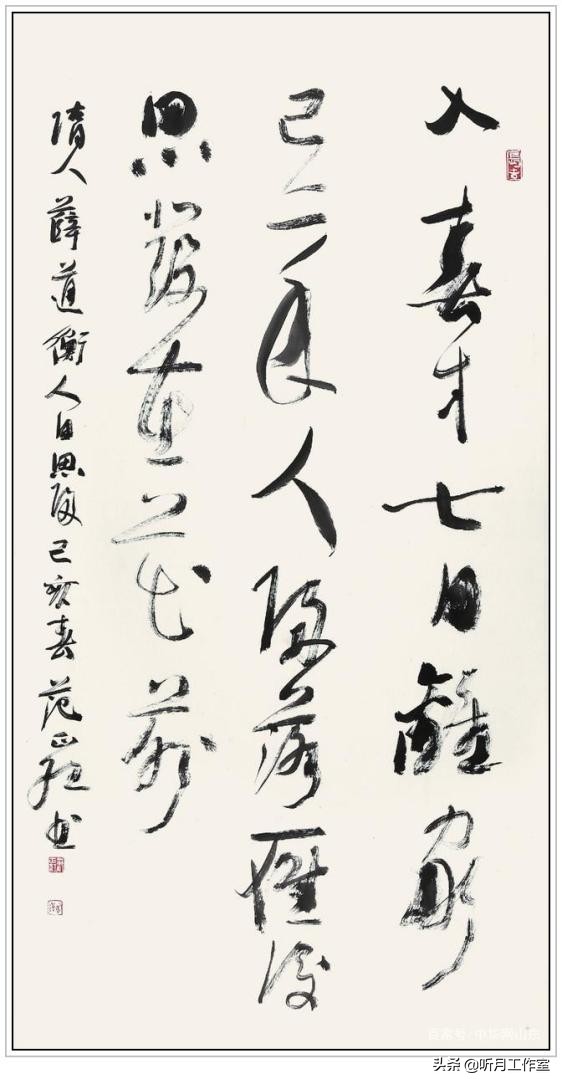 入春才七日離家
已二年人歸落雁後
思發在花前
隋人薛道衡人日思歸己亥春范正紅书
百家号·中华网山东
头条 @听月工作室